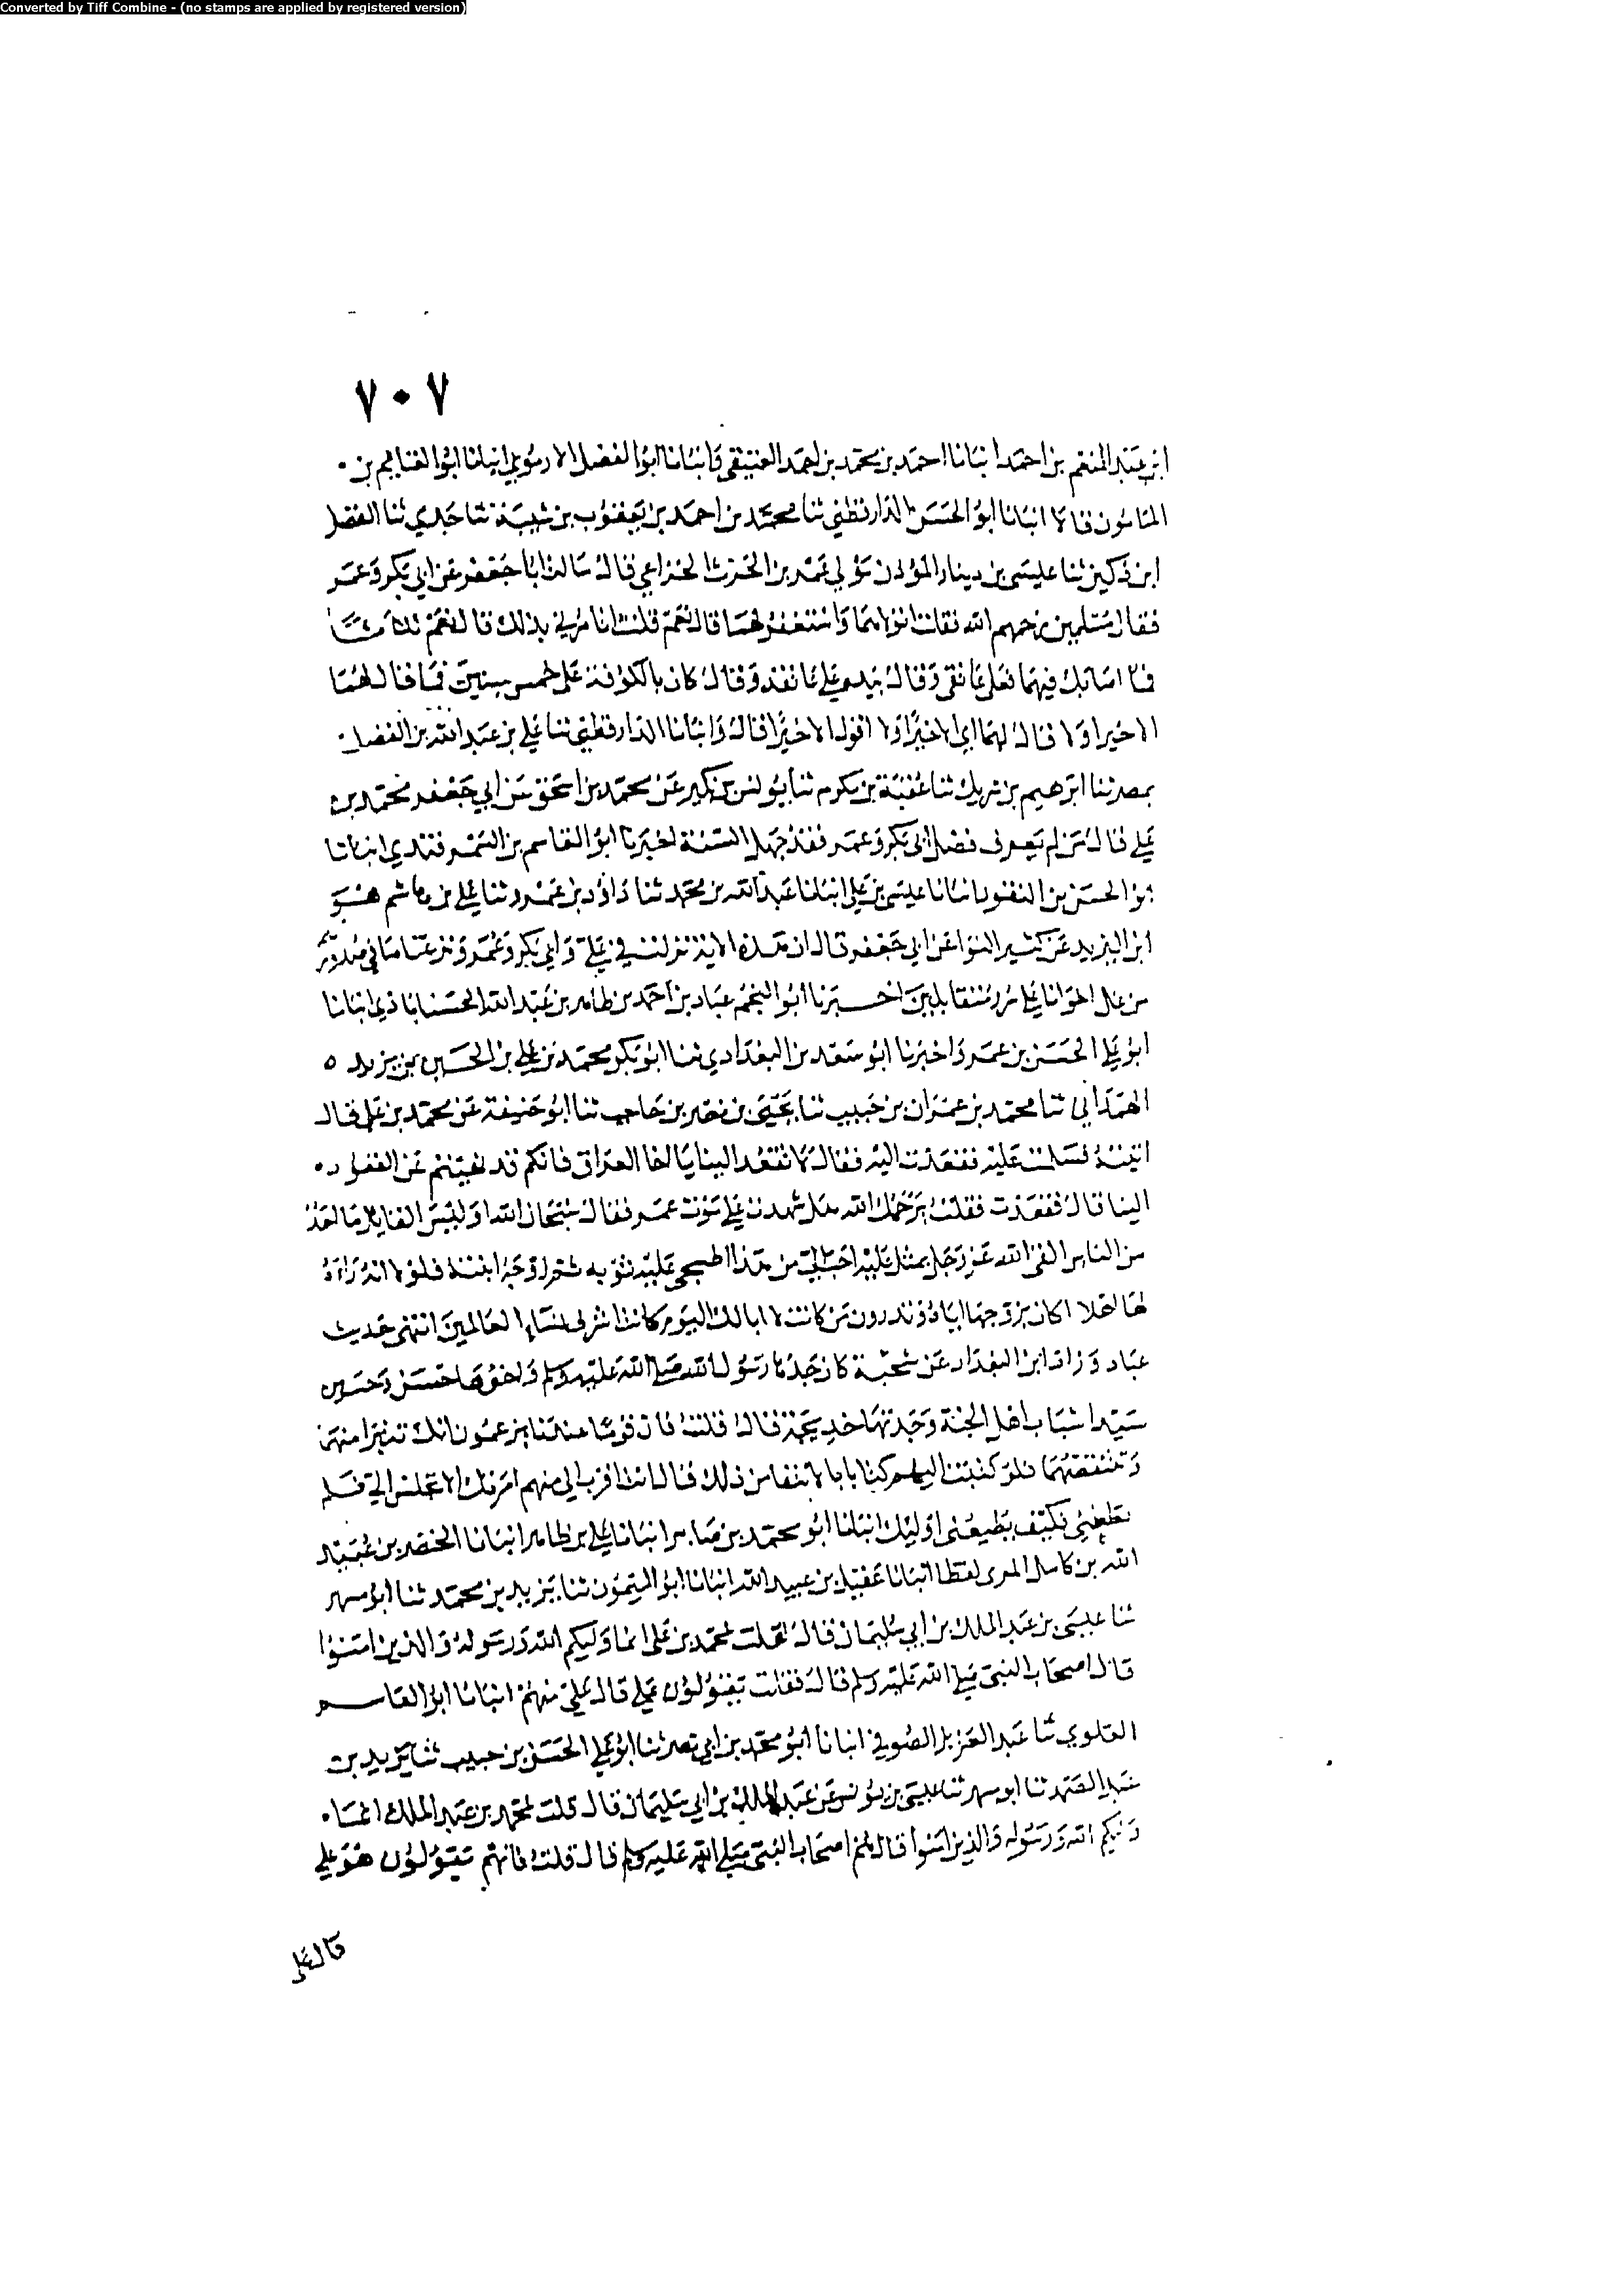 Converted by Tiff Combine - (no stamps are applied by registered version)
٧٠٧
ابن عبد المنعم بن احمد انبانا احمد بن محمد بن احمد العتيقى وانبانا ابو الفضل الارموي انبانا ابو الغنايم بن
المامون قالا انبانا ابو الحسن الدارقطني ثنا محمد بن احمد بن يعقوب بن شيبة ثنا جدي ثنا الفضل
ابن دكين ثنا عيسى بن دينار المؤذن مولي عمرو بن الحرث الخزاعي قال سالت ابا جعفر عن ابي بكر وعمر
فقال مسلمين رحمهم الله فقلت اتولاهما واستغفر لهما قال نعم قلت اتامرني بذلك قال نعم ثلاثا
فما اصابك فيهما فعلى عاتقى وقال بيده علي عاتقه وقال كان بالكوفة علي خمس سنين فما قال لهما
الا خيرا ولا قال لهما ابي الا خيرا ولا اقول الا خيرا قال وانبانا الدارقطني ثنا علي بن عبد الله بن الفضل
بمصر ثنا ابرهيم بن شريك ثنا عقبة بن مكرم ثنا يونس بن بكير عن محمد بن اسحق عن ابي جعفر محمد بن
علي قال من لم يعرف فضل ابى بكر وعمر فقد جهل السنة اخبرنا ابو القاسم بن السمرقندي انبانا
ابو الحسن بن النقور انبانا عيسى بن علي انبانا عبد الله بن محمد ثنا داود بن عمرو ثنا علي بن هاشم هو
ابن البريد عن كثير النوا عن ابي جعفر قال ان هذه الاية نزلت في علي وابي بكر وعمر ونزعنا ما في صدورهم
من غل اخوانا علي سرر متقابلين اخبرنا ابو النجم عباد بن احمد بن طاهر بن عبد الله الحسناباذي انبانا
ابو علي الحسن بن عمر واخبرنا ابو سعد بن البغدادي ثنا ابو بكر محمد بن علي بن الحسين بن يزيد ٥
الهمداني ثنا محمد بن عمران بن حبيب ثنا يحيى بن نصر بن حاجب ثنا ابو حنيفة عن محمد بن علي قال
اتيته فسلمت عليه فقعدت اليه فقال لا تقعد الينا يا اخا العراق فانكم قد نهيتم عن القعود
الينا قال فقعدت فقلت يرحمك الله هل شهد علي موت عمر فقال سبحان الله اوليس القايل ما احد
من الناس القى الله عز وجل بمثل عليه احب الي من هذا المسجى عليه ثوبه ثم زوجه ابنته فلولا انه راه
لها اهلا اكان يزوجها اياه وتدرون من كانت لا ابا لك اليوم كانت اشرف نساء العالمين انتهى حديث
عباد وزاد ابن البغداد عن شحبة كان جدها رسول الله صلى الله عليه وسلم واخوها حسن وحسين
سيدا شباب اهل الجنة وجدتها خديجة قال قلت فان قوما عندنا يزعمون انك تتبرا منهما
وتنتقصهما فلو كتبت اليهم كتابا بالانتفا من ذلك قال انت اقرب الي منهم امرتك الا تجلس الي فلم
تطعني فكيف يطيعنى اوليك انبانا ابو محمد بن صابر انبانا علي بن طاهر انبانا الخضر بن عبيد
الله بن كامل المرى لفظا انبانا عقيل بن عبيد الله انبانا ابو الميمون ثنا يزيد بن محمد ثنا ابو مسهر
ثنا عيسى بن عبد الملك بن ابي سليمان قال قلت لمحمد بن علي انما وليكم الله ورسوله والذين امنوا
قال اصحاب النبي صلي الله عليه وسلم قال فقلت يقولون علي قال علي منهم انبانا ابو القاسم
العلوي ثنا عبد العزيز الصوفي انبانا ابو محمد بن ابي نصر ثنا ابو علي الحسن بن حبيب ثنا يزيد بن
عبد الصمد ثنا ابو مسهر ثنا عيسى بن يونس عن عبد الملك بن ابي سليمان قال قلت لمحمد بن عبد الملك انما
وليكم الله ورسوله والذين امنوا قال هم اصحاب النبي صلي الله عليه وسلم قال قلت فانهم يقولون هو علي
قال علي